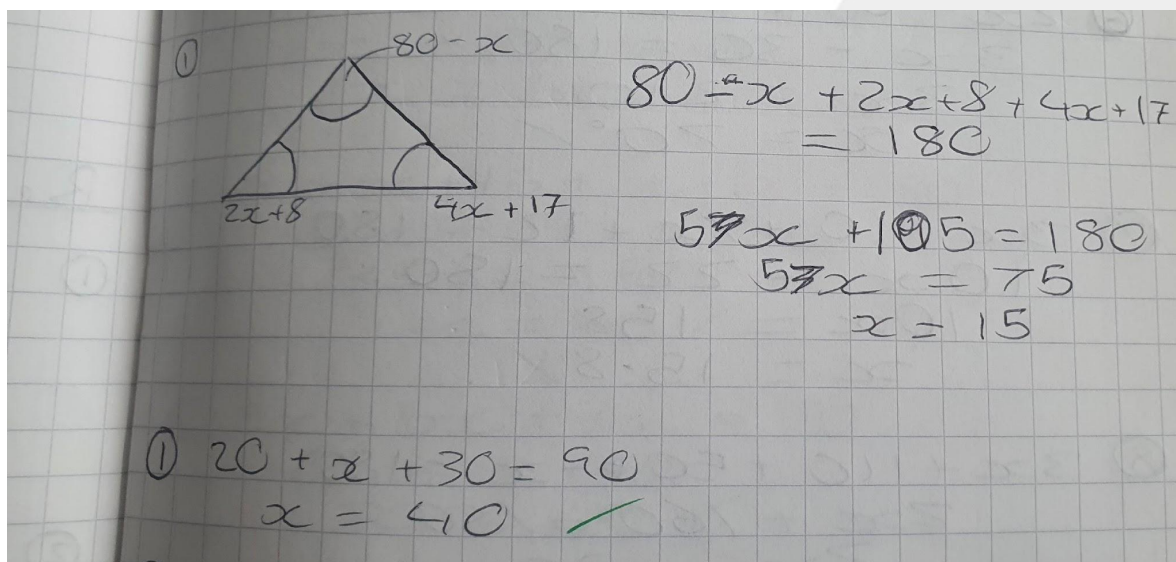 ①
80 - x
2x+8
4x + 17
80 - x + 2x + 8 + 4x + 17
= 180
5x + 105 = 180
5x = 75
x = 15
① 20 + x + 30 = 90
x = 40 ✓